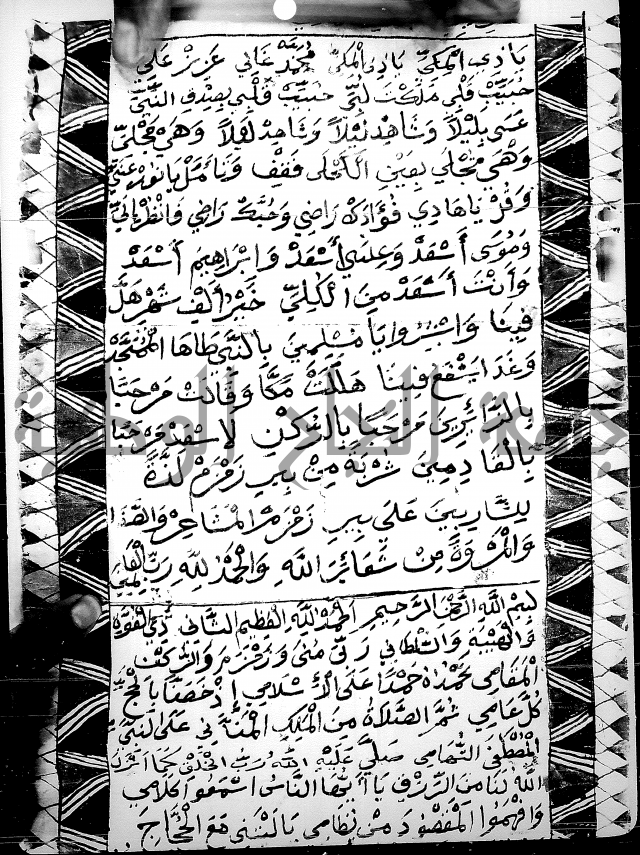 يَاذِي الْمَكِيّ يَاذِي الْمَكِيّ مُحَمَّدْ غَالِي عَزِيزْ عَلَيّ
حَبِيبْ قَلْبِي مَلَكْتْ لُبِّي حَبِيبْ قَلْبِي بِصِدْقِ النَّبِيّ
عَسَى بِلَيْلاً وَشَاهِدْ لَيْلاً وَشَاهِدْ لَيْلاً وَهِيَ مَجْلِيّ
وَهْيَ مَجْلِي بِعَيْنِ الْكَحْلِي فَقِفْ وَتَأَمَّلْ يَا نُورْ عَيْنَيّ
وَقُرْ يَاهَادِي فُؤَادَكْ رَاضِي وَحُبَّكْ رَاضِي وَانْظُرْ إِلَيّ
وَمُوسَى أَسْعَدْ وَعِيسَى أَسْعَدْ وَإِبْرَاهِيمْ أَسْعَدْ
وَأَنْتَ أَسْعَدْ مِنَ الْكُلِيّ خَيْرْ أَلْفِ شَهْرْ هَلَّ
فِينَا وَابْشِرُوا يَا مُسْلِمِينَ بِالنَّبِيّ طَاهَا الْمُمَجَّدْ
وَغَدَا يَشْفَعْ فِينَا هَلَّلَتْ مَكَّا وَقَالَتْ مَرْحَبَا
بِالزَّائِرِينَ مَرْحَبًا بِالرُّكْنِ لاَسْعَدْ مَرْحَبَا
بِالْقَادِمِينَ شُرْبَةْ مِنْ بِيرِ زَمْزَمْ لَذَّةً
لِلشَّارِبِينَ عَلَى بِيرِ زَمْزَمْ الْمَشَاعِرْ وَالصَّفَا
وَالْمَرْوَةَ مِنْ شَعَائِرَ اللَّهِ وَالْحَمْدُ لِلَّهِ رَبِّ الْعَالَمِينَ
بِسْمِ اللَّهِ الرَّحْمَنِ الرَّحِيمِ الْحَمْدُ لِلَّهِ الْعَظِيمِ الشَّانِي ذِي الْقُوَّةِ
وَالْهَيْبَةِ وَالسُّلْطَانِي رَبِّ مِنَى وَزَمْزَمْ وَالرُّكْنِ
الْمَقَامِي نَحْمَدُهُ حَمْدًا عَلَى الْإِسْلَامِي إِذْ خَصَّنَا بِالْحَجِّ
كُلَّ عَامِي ثُمَّ الصَّلَاةُ مِنَ الْمَلِكِ الْمَنَّانِي عَلَى النَّبِيّ
الْمُصْطَفَى التُّهَامِي صَلَّى عَلَيْهِ اللَّهُ رَبُّ الْخَلْقِ كَمَا
اللَّهُ لَنَا مِنَ الرِّزْقِ يَا أَيُّهَا النَّاسُ اسْمَعُوا كَلَامِي
وَافْهَمُوا الْمَقْصُودَ مِنْ نِظَامِي يَا لَيْتَنِي مَعَ الْحُجَّاجَ